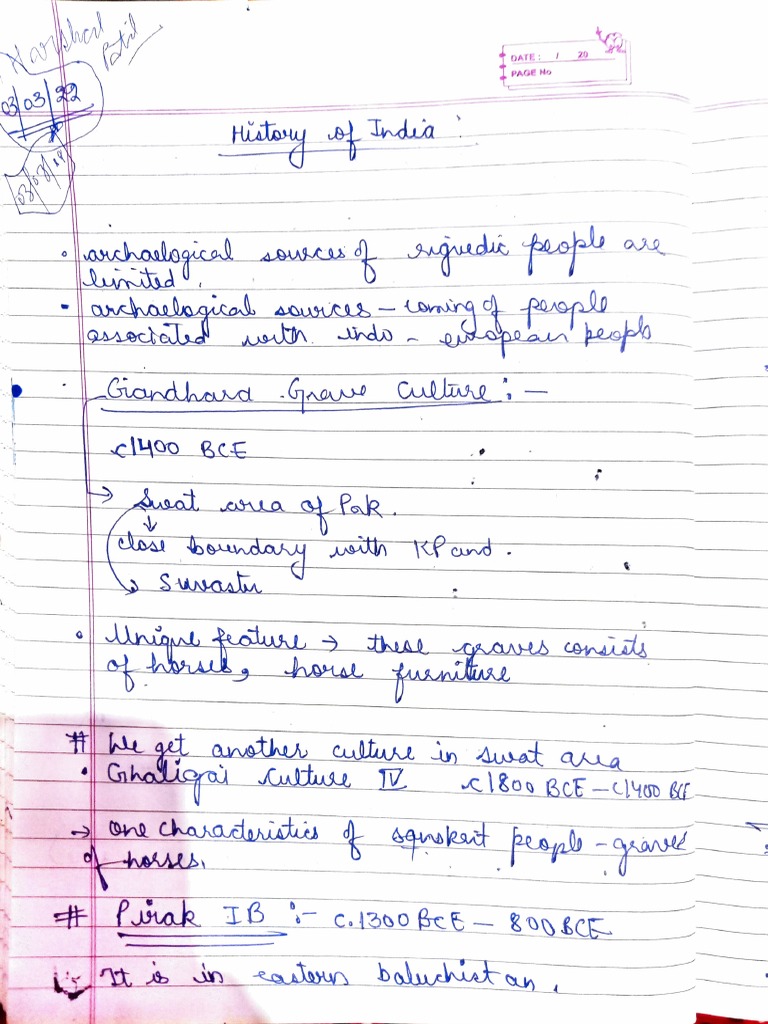 Harshal
Patil
03/03/22
DATE: / 20
PAGE No
History of India :
• archaelogical sources of rigvedic people are
limited.
- archaelogical sources - coming of people
associated with indo - european people
Giandhara Grave Culture :-
c1400 BCE
→ Swat area of Pak.
↓
close boundary with KP and.
→ Suvastu
• Unique feature → these graves consists
of horses, horse furniture
# We get another culture in swat area
• Ghaligai Culture IV c1800 BCE - c1400 BCE
→ one characteristics of sanskrit people - graves
of horses.
# Pirak IB :- c.1300 BCE - 800 BCE
It is in eastern baluchistan.